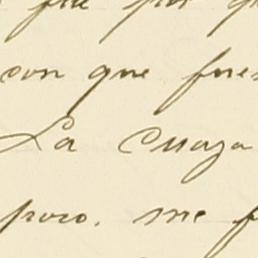 fue por q
con que fues
La Cuaya
poco. me f